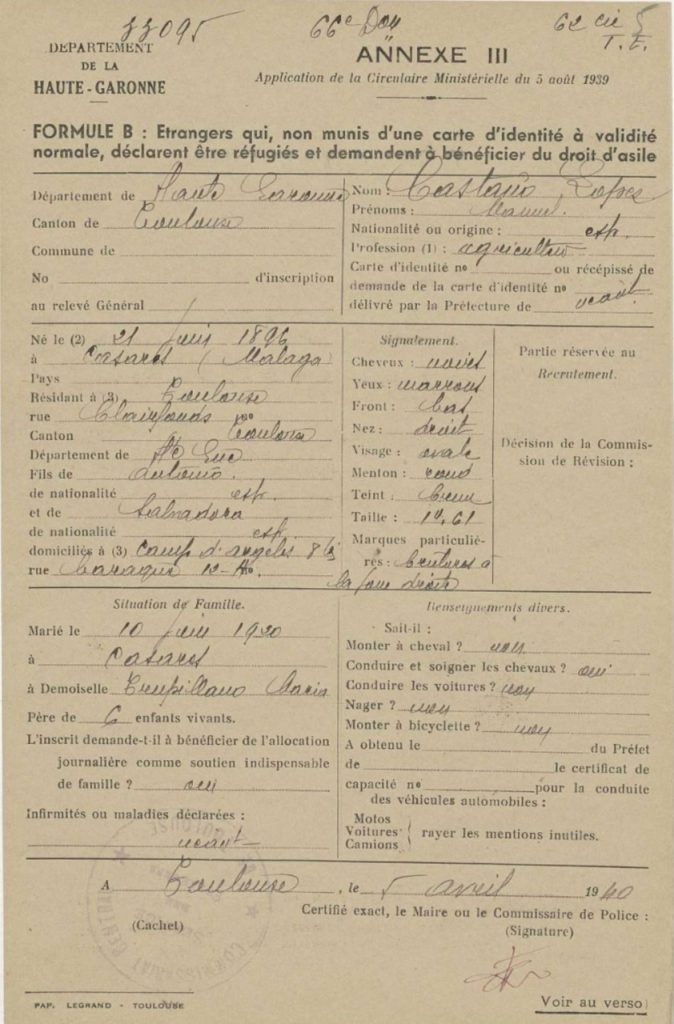 33095
66e Don
62 cie 5
T.E.
DÉPARTEMENT
DE LA
HAUTE-GARONNE
ANNEXE III
Application de la Circulaire Ministérielle du 5 août 1939
FORMULE B : Etrangers qui, non munis d'une carte d'identité à validité
normale, déclarent être réfugiés et demandent à bénéficier du droit d'asile
Département de Haute Garonne
Canton de Toulouse
Commune de
No d'inscription
au relevé Général
Nom : Castaño Lopes
Prénoms : Manuel.
Nationalité ou origine : esp.
Profession (1) : agriculteur
Carte d'identité no ou récépissé de
demande de la carte d'identité no
délivré par la Préfecture de néant
Né le (2) 21 Juin 1896
à Casares (Malaga)
Pays
Résidant à (3) Toulouse
rue Clairfonds no
Canton Toulouse
Département de Hte Gne
Fils de Antonio.
de nationalité esp.
et de Salvadora
de nationalité esp.
domiciliés à (3) Camp d'argelès 8
rue Baraque 12
Signalement.
Cheveux : noirs
Yeux : marrons
Front : bas
Nez : droit
Visage : ovale
Menton : rond
Teint : brun
Taille : 1m,61
Marques particuliè-
res : brulures à
la joue droite
Partie réservée au
Recrutement.
Décision de la Commis-
sion de Révision :
Situation de Famille.
Marié le 10 Juin 1920
à Casares
à Demoiselle Trupillano Maria
Père de 6 enfants vivants.
L'inscrit demande-t-il à bénéficier de l'allocation
journalière comme soutien indispensable
de famille ? oui
Infirmités ou maladies déclarées :
néant
Renseignements divers.
Sait-il :
Monter à cheval ? non
Conduire et soigner les chevaux ? oui
Conduire les voitures ? non
Nager ? non
Monter à bicyclette ? non
A obtenu le du Préfet
de le certificat de
capacité no pour la conduite
des véhicules automobiles :
Motos
Voitures
Camions
rayer les mentions inutiles.
A Toulouse, le 5 avril 1940
Certifié exact, le Maire ou le Commissaire de Police :
(Cachet)
(Signature)
COMMISSARIAT CENTRAL
TOULOUSE
PAP. LEGRAND - TOULOUSE
Voir au verso)